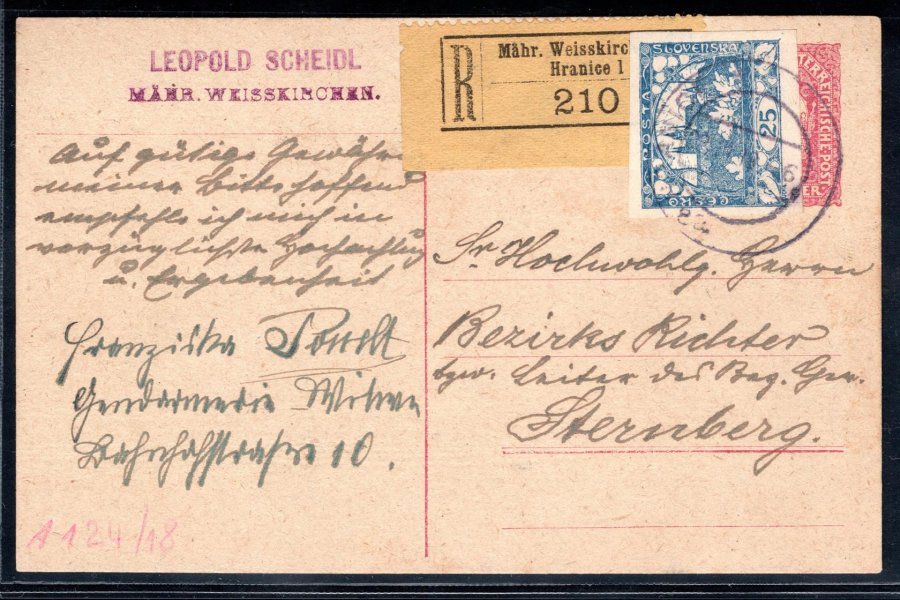 LEOPOLD SCHEIDL
MÄHR. WEISSKIRCHEN.
R
Mähr. Weisskirc
Hranice 1
210
POŠTA ČESKO
SLOVENSKÁ
25
TERREICHISCHE·POST
ER
Auf gütige Gewähr
meiner Bitte hoffend
empfehle ich mich in
vorzüglichster Hochachtug
u. Ergebenheit
Franziska
Gendarmerie Witwe
Bahnhofstrasse 10.
Sr Hochwohlg. Herrn
Bezirks Richter
bzw. Leiter des Bez. Ger.
Sternberg.
A 124/18